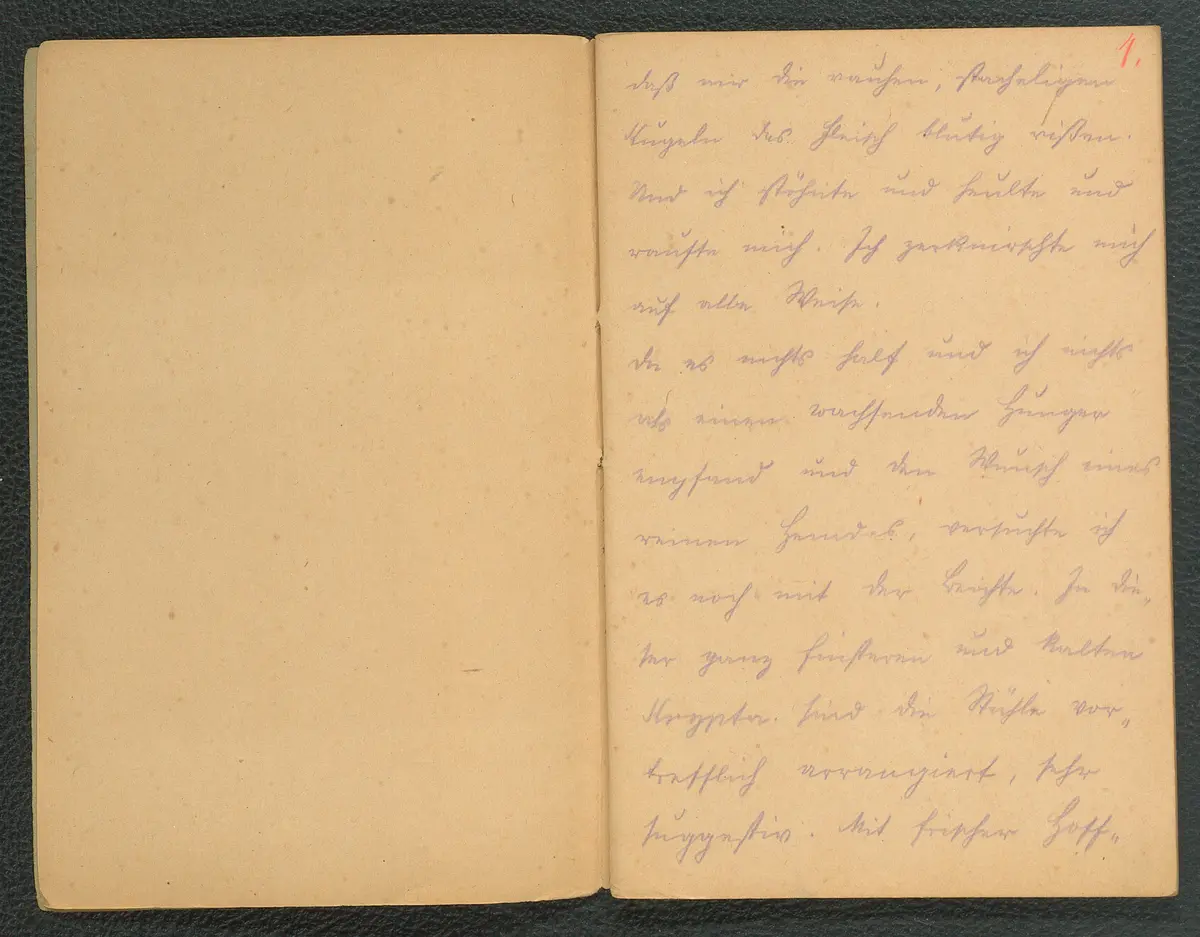 1.
daß mir die rauhen, stacheligen
Kugeln das Fleisch blutig rißen.
Und ich stöhnte und heulte und
raufte mich. Ich zerknirschte mich
auf alle Weise.
Da es nichts half und ich nichts
als einen wachsenden Hunger
empfand und den Wunsch eines
reinen Hemdes, versuchte ich
es noch mit der Beichte. In die„
ser ganz finsteren und kalten
Krypta sind die Stühle vor„
trefflich arrangiert, sehr
suggestiv. Mit frischer Hoff„